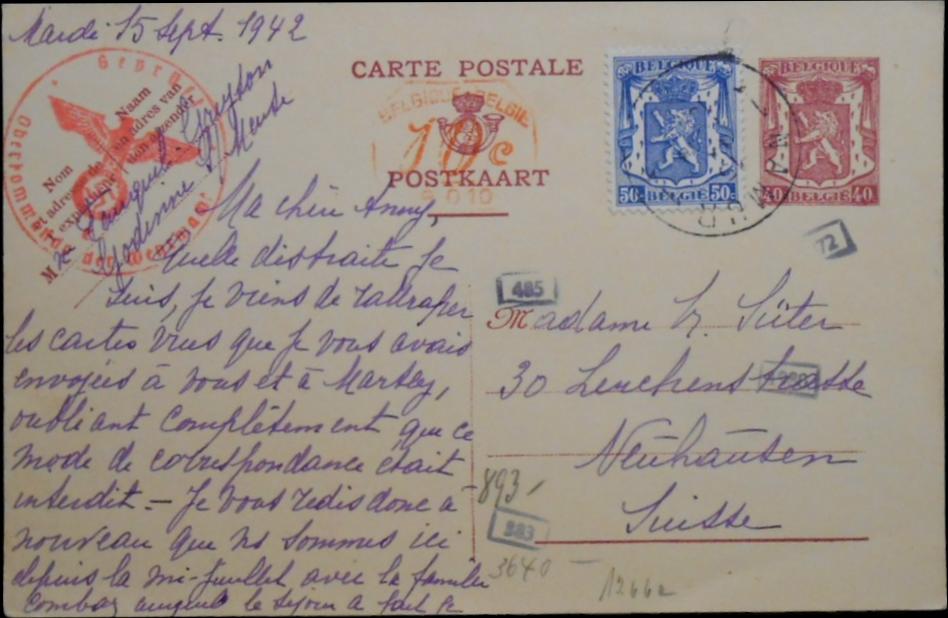 Mardi 15 Sept. 1942
Geprüft
Oberkommando der Wehrmacht
Nom Naam
et adresse de en adres van
expéditeur den afzender
Godinne s/ Meuse
CARTE POSTALE
BELGIQUE-BELGIË
10c
POSTKAART
BELGIQUE
50c 50c
BELGIE
BELGIQUE
40 40
BELGIE
Ma chère Anny,
Quelle distraite je
suis, je viens de rattraper
les cartes vues que je vous avais
envoyées à vous et à
oubliant complètement que ce
mode de correspondance était
interdit. – Je vous redis donc à
nouveau que ns sommes ici
depuis la mi-juillet avec la famille
le séjour a fait
72
485
Madame Süter
30
Neuhausen
Suisse
893
883
3640 –
1266a